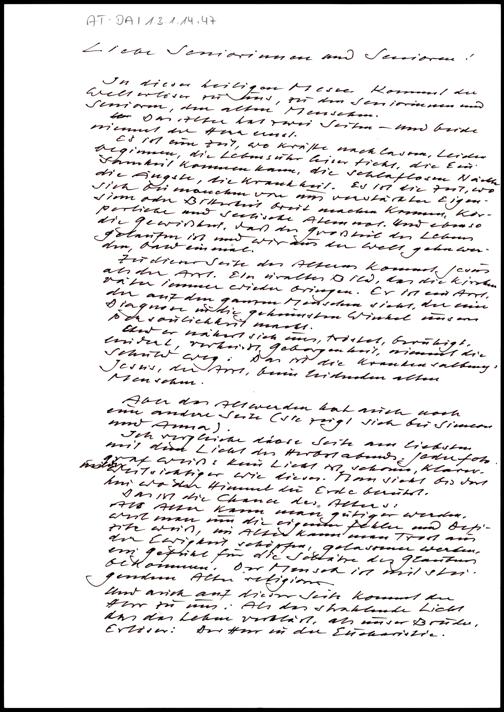 AT-DAI 13.1.14.47
Liebe Seniorinnen und Senioren!
In dieser heiligen Messe kommt der
Welterlöser zu uns, zu den Seniorinnen und
Senioren, den alten Menschen.
Das Alter hat zwei Seiten - und beide
nimmt der Herr ernst.
Es ist eine Zeit, wo Kräfte nachlassen, Leiden
beginnen, die Lebensuhr leiser tickt, die Ein-
samkeit kommen kann, die schlaflosen Nächte
die Ängste, die Krankheit. Es ist die Zeit, wo
sich bei manchen von uns verstärkter Eigen-
sinn oder Bitterkeit breit machen können, kör-
perliche und seelische Atemnot. Und ebenso
die Gewißheit, daß der Großteil des Lebens
gelaufen ist und wir aus der Welt gehen wer-
den, bald einmal.
Zu dieser Seite des Alterns kommt Jesus
als der Arzt. Ein uraltes Bild, das die Kirchen-
väter immer wieder bringen. Er ist ein Arzt,
der auf den ganzen Menschen sieht, der eine
Diagnose in die geheimsten Winkel unserer
Persönlichkeit macht.
Und er nähert sich uns, tröstet, beruhigt,
lindert, verheißt Geborgenheit, nimmt die
Schuld weg: Das ist die Krankensalbung:
Jesus, der Arzt, beim leidenden alten
Menschen.
Aber das Altwerden hat auch noch
eine andere Seite (sie zeigt sich bei Simeon
und Anna).
Ich vergleiche diese Seite am liebsten
mit dem Licht des Herbstabends: Jeder Foto-
graf weiß: kein Licht ist schöner, klarer,
weitsichtiger wie dieses. Man sieht bis dort
hin wo der Himmel die Erde berührt.
Das ist die Chance des Alters:
Im Alter kann man gütiger werden,
weil man um die eigenen Fehler und Defi-
zite weiß, im Alter kann man Trost aus
der Ewigkeit schöpfen, gelassener werden,
ein Gefühl für die Schätze des Glaubens
bekommen. Der Mensch ist mit stei-
gendem Alter religiöser.
Und auch auf dieser Seite kommt der
Herr zu uns: Als das strahlende Licht
das das Leben verklärt, als unser Bruder,
Erlöser: Der Herr in der Eucharistie.